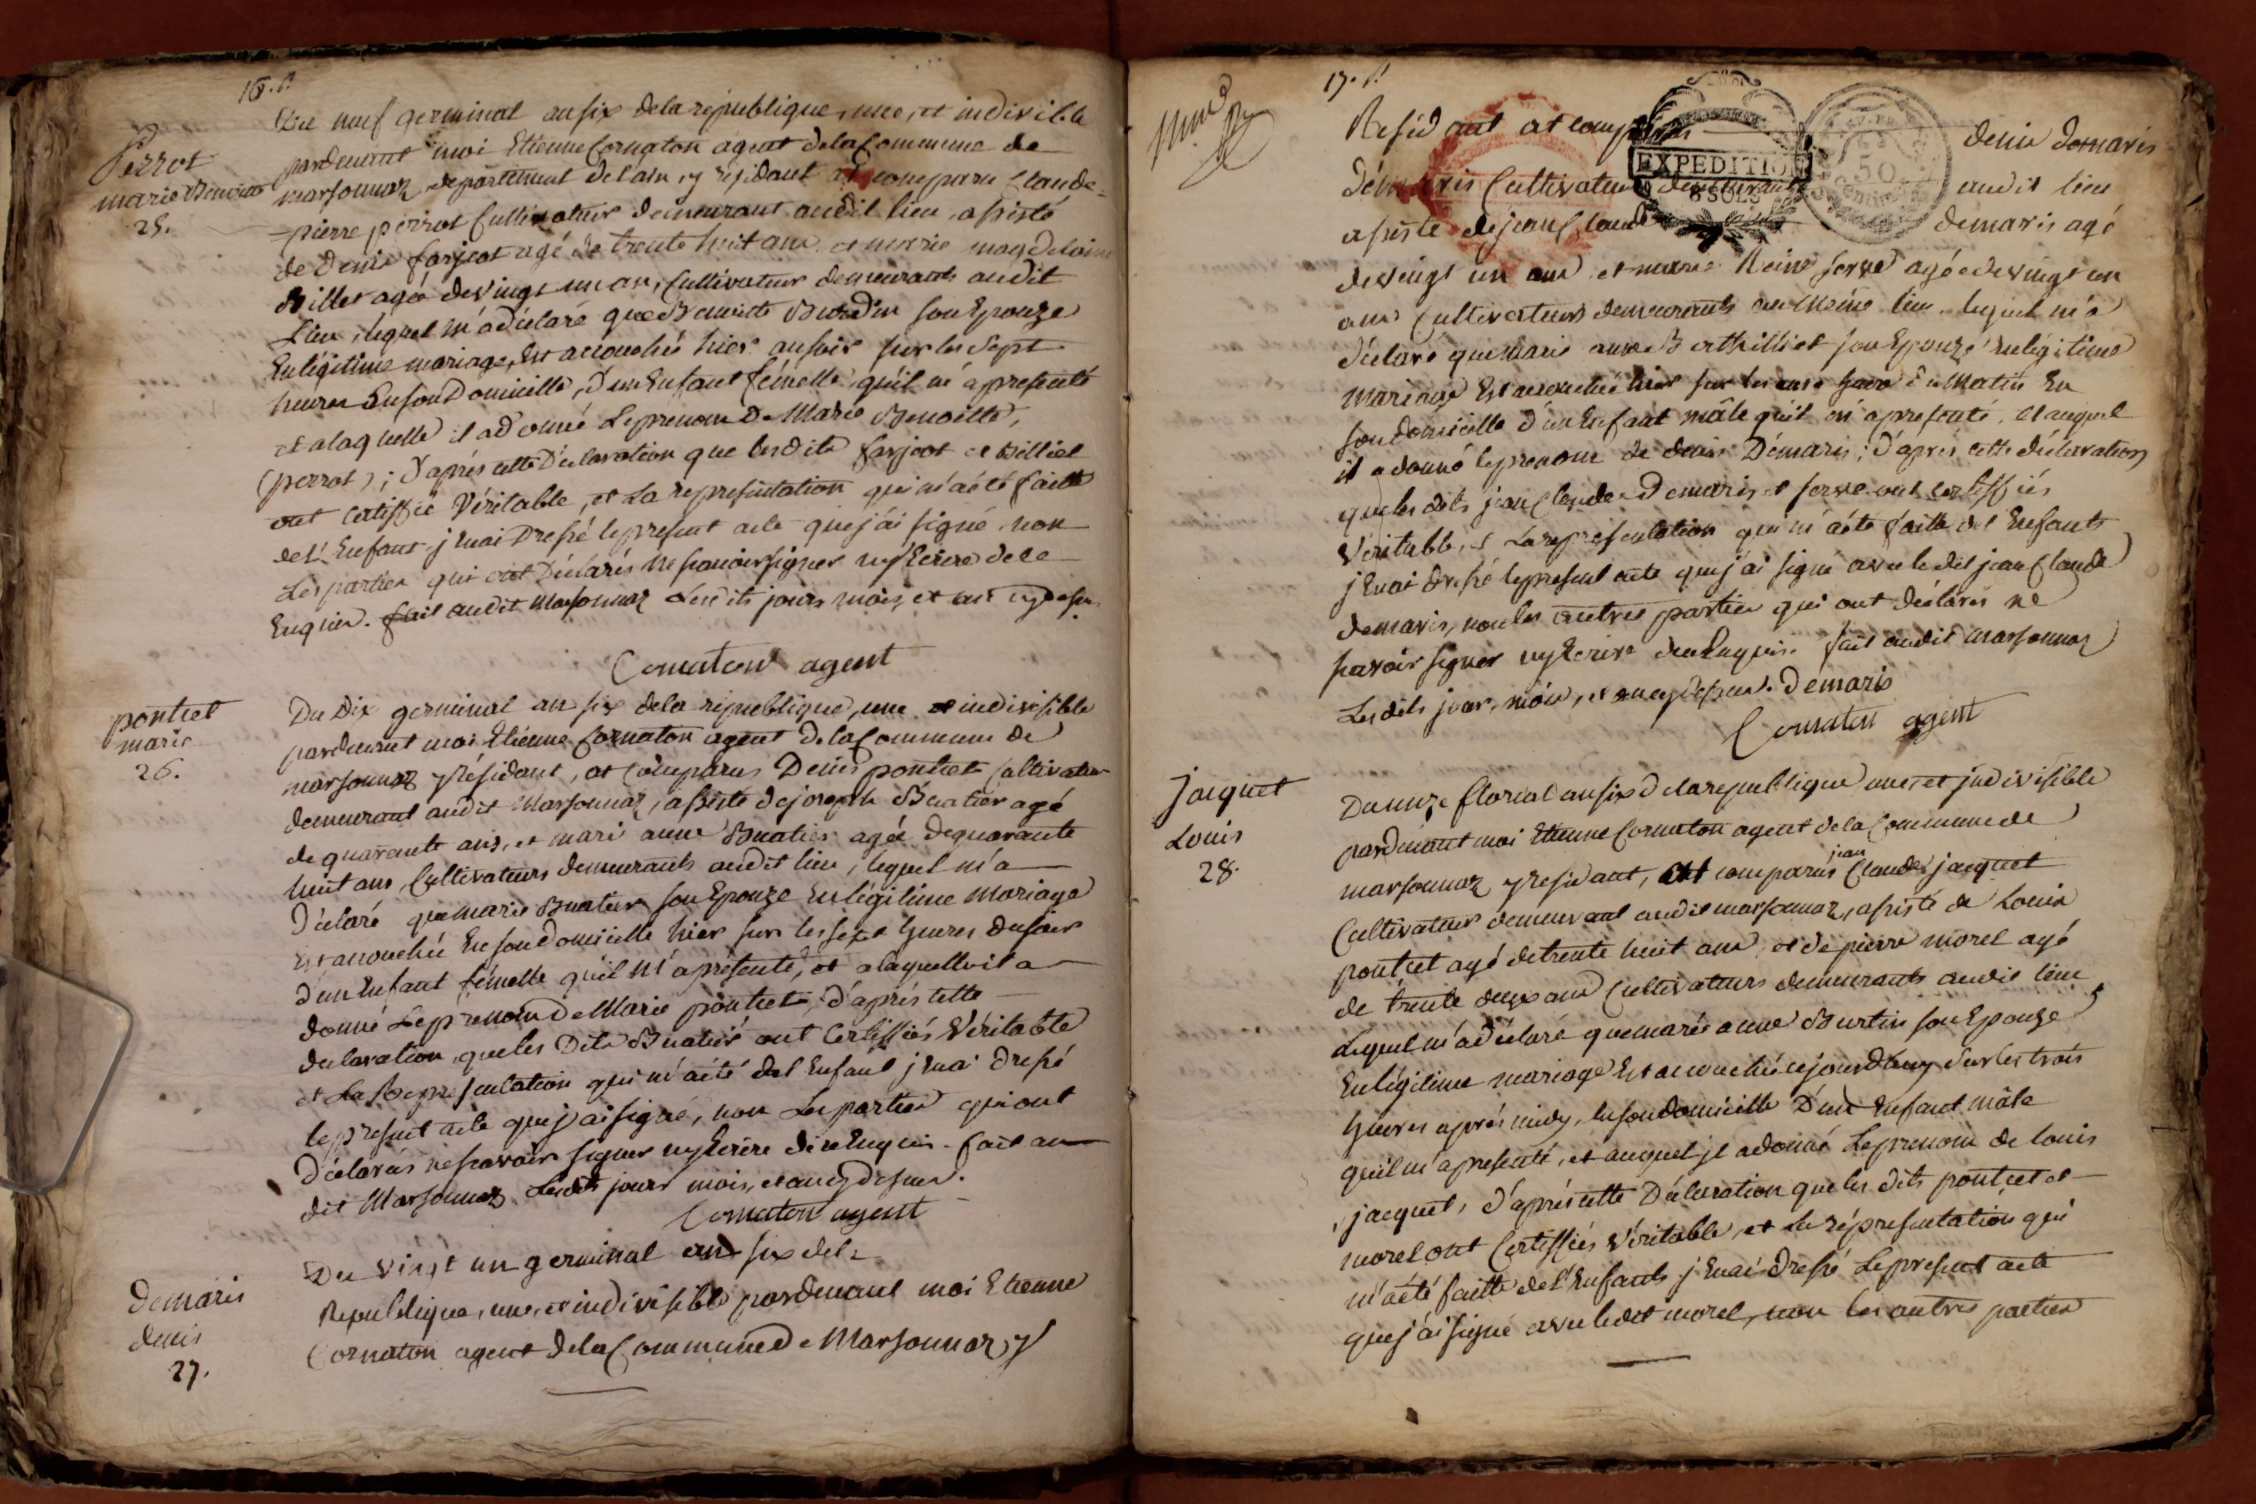 16. P.
Du neuf germinal an six de la republique, une, et indivisible
Perrot
marie Benoite
25.
pardevant moi Etienne Cornaton agent de la Commune de
marsonnaz departement de lain, y résidant at comparu Claude-
pierre perrot Cultivateur demeurant audit lieu, assisté
de Denis farjeot agé de trente huit ans et marie magdelaine
Billet agée de vingt un an, Cultivateurs demeurants audit
Lieu, lequel m'a déclaré que Benoite Burdin son Epouze
En légitime mariage, Est accouchée hier au soir sur les Sept
heures En son Domicille, d'un Enfant fémelle qu'il m'a presenté
et a laquelle il a donné Le prenom De Marie Benoitte,
(perrot); d'aprés cette Déclaration que lesdits farjeot et Billiet
ont certiffié Véritable, et La representation qui m'a été faitte
de l'Enfant, j'Enai Dressé le present acte que j'ai signé, non
Les parties qui ont Déclarés ne scavoir signer ny Ecrire de ce
Enquies. fait audit Marsonnaz Lesdits jours mois et an cy dessus
Cornaton agent
pontiet
marie
26.
Du Dix germinal an six de la république, une et indivisible
pardevant moi Etienne Cornaton agent De la Commune de
marsonnaz y résidant, at Comparus Denis pontiet Cultivateur
demeurant audit Marsonnaz, assisté de joseph Buatier agé
de quarante ans, et mari anne Buatier agée de quarante
huit ans Cultivateurs demeurants audit lieu, lequel m'a
Déclaré que marie Buatier son Epouze En légitime Mariage
Est accouchée En son domicille hier sur les sept heures du soir
d'un Enfant fémelle qu'il M'a présenté, et a laquelle il a
donné Le prenom De Marie pontiet, d'aprés cette
declaration, que les Dits Buatier ont Certiffiés Véritable
et La Representation qui m'a été del Enfant j'Enai dressé
le present acte que j'ai signé, non Les parties qui ont
déclarés ne scavoir signer ny Ecrire de ce Enquis. fait au
dit Marsonnaz Lesdits jours mois, et an cy dessus.
Cornaton agent
Demaris
denis
27.
Du vingt un germinal an six de la
Republique, une, et indivisible pardevant moi Etienne
Cornaton agent de la Commune De Marsonnaz y
17. P.
Residant at comparus denis demaris
EXPEDITION
8 SOLS
50
Démaris Cultivateur demeurant audit lieu
assisté de jean Claude demaris agé
de vingt un ans et marie Reine serve agée de vingt un
ans Cultivateurs demeurants au même lieu, lequel m'a
déclaré que marie anne Berthilliet son Epouze En légitime
mariage Est accouchée hier sur les onze heures du Matin En
son domicille d'un Enfant mâle qu'il m'a presenté, et auquel
il a donné le prenom de denis Démaris; d'aprés cette déclaration
que les dits jean Claude Demaris et serve ont certiffiés
Véritable, et La representation qui m'a été faitte del Enfants
j'Enai dressé le present acte que j'ai signé avec le dit jean Claude
demaris, non les autres parties qui ont déclarés ne
scavoir signer ny Ecrire de ce Enquis. fait audit Marsonnaz
Les dits jour, mois, et an cy dessus. Demaris
Cornaton agent
jacquet
Louis
28.
Du onze floreal an six de la republique une et indivisible
pardevant moi Etienne Cornaton agent de la Commune de
marsonnaz y residant, at comparus jean Claude jacquet
Cultivateur demeurant audit marsonnaz, assisté de Louis
pontiet agé de trente huit ans et de pierre morel agé
de trente deux ans Cultivateurs demeurants audit lieu,
Lequel m'a déclaré que marie anne Burtin son Epouze
En légitime mariage Est accouchée cejourd'huy sur les trois
heures aprés midy, En son domicille D'un Enfant mâle
qu'il m'a presenté, et auquel il a donné Le prenom de louis
jacquet, d'aprés cette Déclaration que les dits pontiet et
morel ont Certiffiés Véritable, et La répresentation qui
m'a été faitte de l'Enfants j'Enai dressé Le present acte
que j'ai signé avec ledit morel, non les autres parties